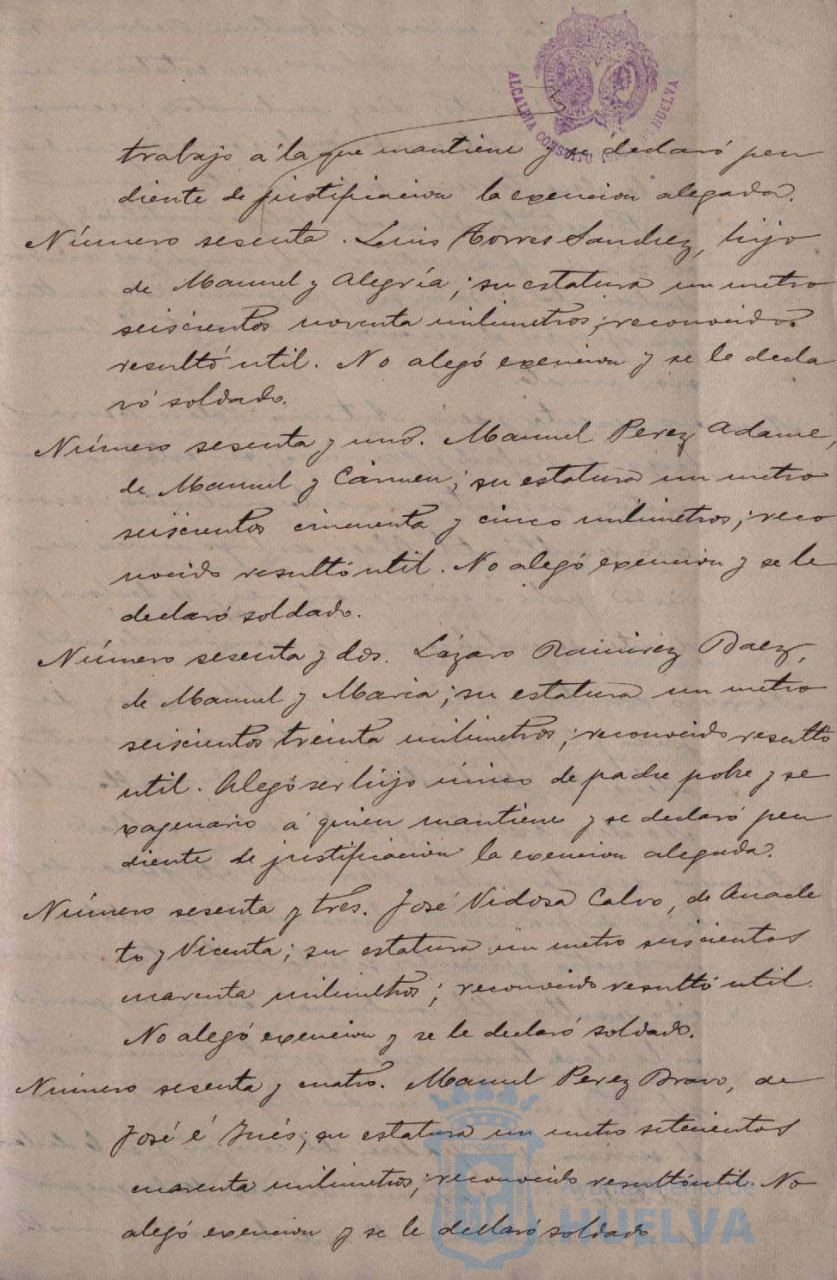 ALCALDIA CONSTITU HUELVA
trabajo á la que mantiene y se declaró pen
diente de justificacion la exencion alegada.
Número sesenta. Luis Torres Sandez, hijo
de Manuel y Alegría; su estatura un metro
seiscientos noventa milimetros; reconocido
resultó util. No alegó exencion y se le decla
ró soldado.
Número sesenta y uno. Manuel Perez Adame,
de Manuel y Cármen; su estatura un metro
seiscientos cincuenta y cinco milimetros; reco
nocido resultó util. No alegó exencion y se le
declaró soldado.
Número sesenta y dos. Lázaro Ramirez Baez,
de Manuel y Maria; su estatura un metro
seiscientos treinta milimetros; reconocido resultó
util. Alegó ser hijo único de padre pobre y se
xagenario á quien mantiene y se declaró pen
diente de justificacion la exencion alegada.
Número sesenta y tres. José Vidosa Calvo, de Anacle
to y Vicenta; su estatura un metro seiscientos
cuarenta milimetros; reconocido resultó util.
No alegó exencion y se le declaró soldado.
Número sesenta y cuatro. Manuel Perez Bravo, de
José é Inés; su estatura un metro setecientos
cuarenta milimetros; reconocido resultó util. No
alegó exencion y se le declaró soldado
Ayuntamiento de
HUELVA